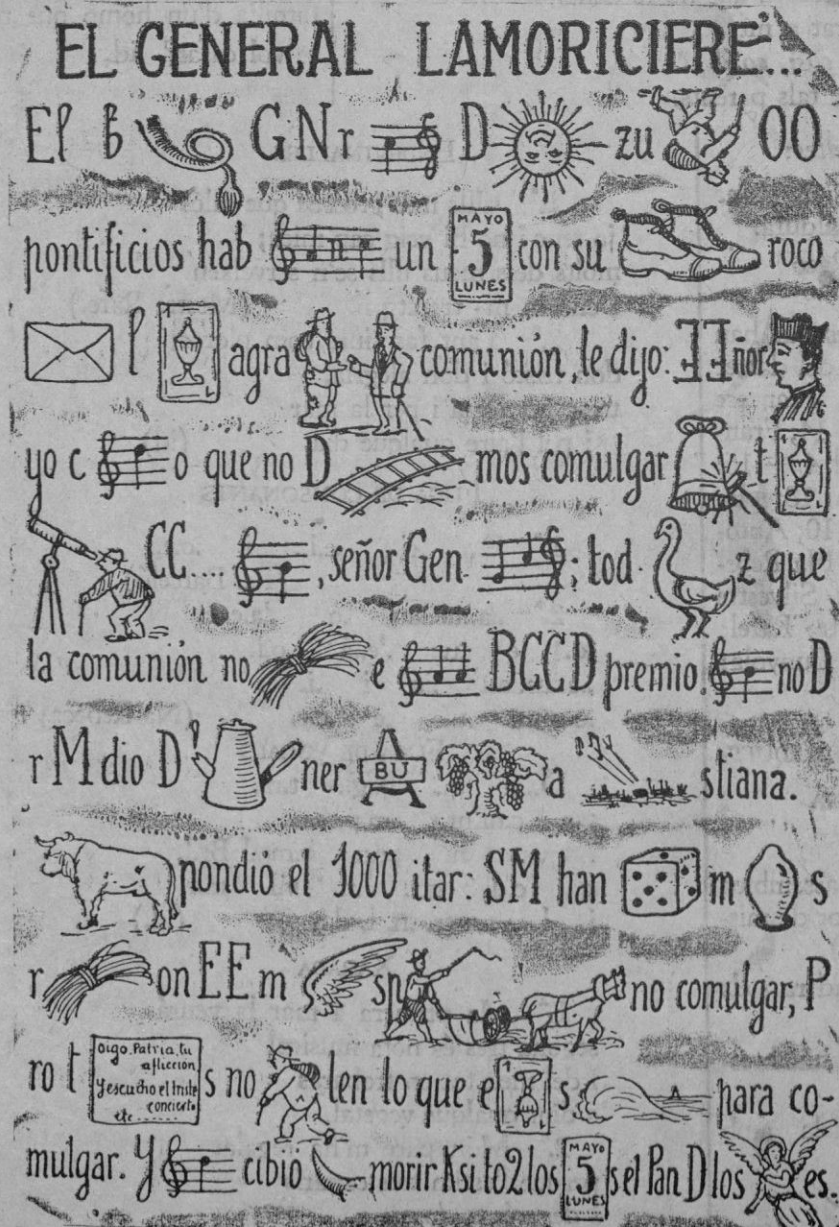 EL GENERAL LAMORICIERE...
El B G N r D zu OO
pontificios hab un MAYO 5 LUNES con su roco
l agra comunión, le dijo: EEñor
yo c o que no D mos comulgar t
CC.... , señor Gen ; tod z que
la comunión no e BCCD premio. no D
r M dio D ner BU a stiana.
pondió el 1000 itar: SM han m s
r on EE m sp no comulgar, P
ro t Oigo, Patria, tu aflicción Y escucho el triste concierto etc...... s no len lo que e s para co-
mulgar. Y cibió morir Ksi to2 los MAYO 5 LUNES s el Pan D los es.